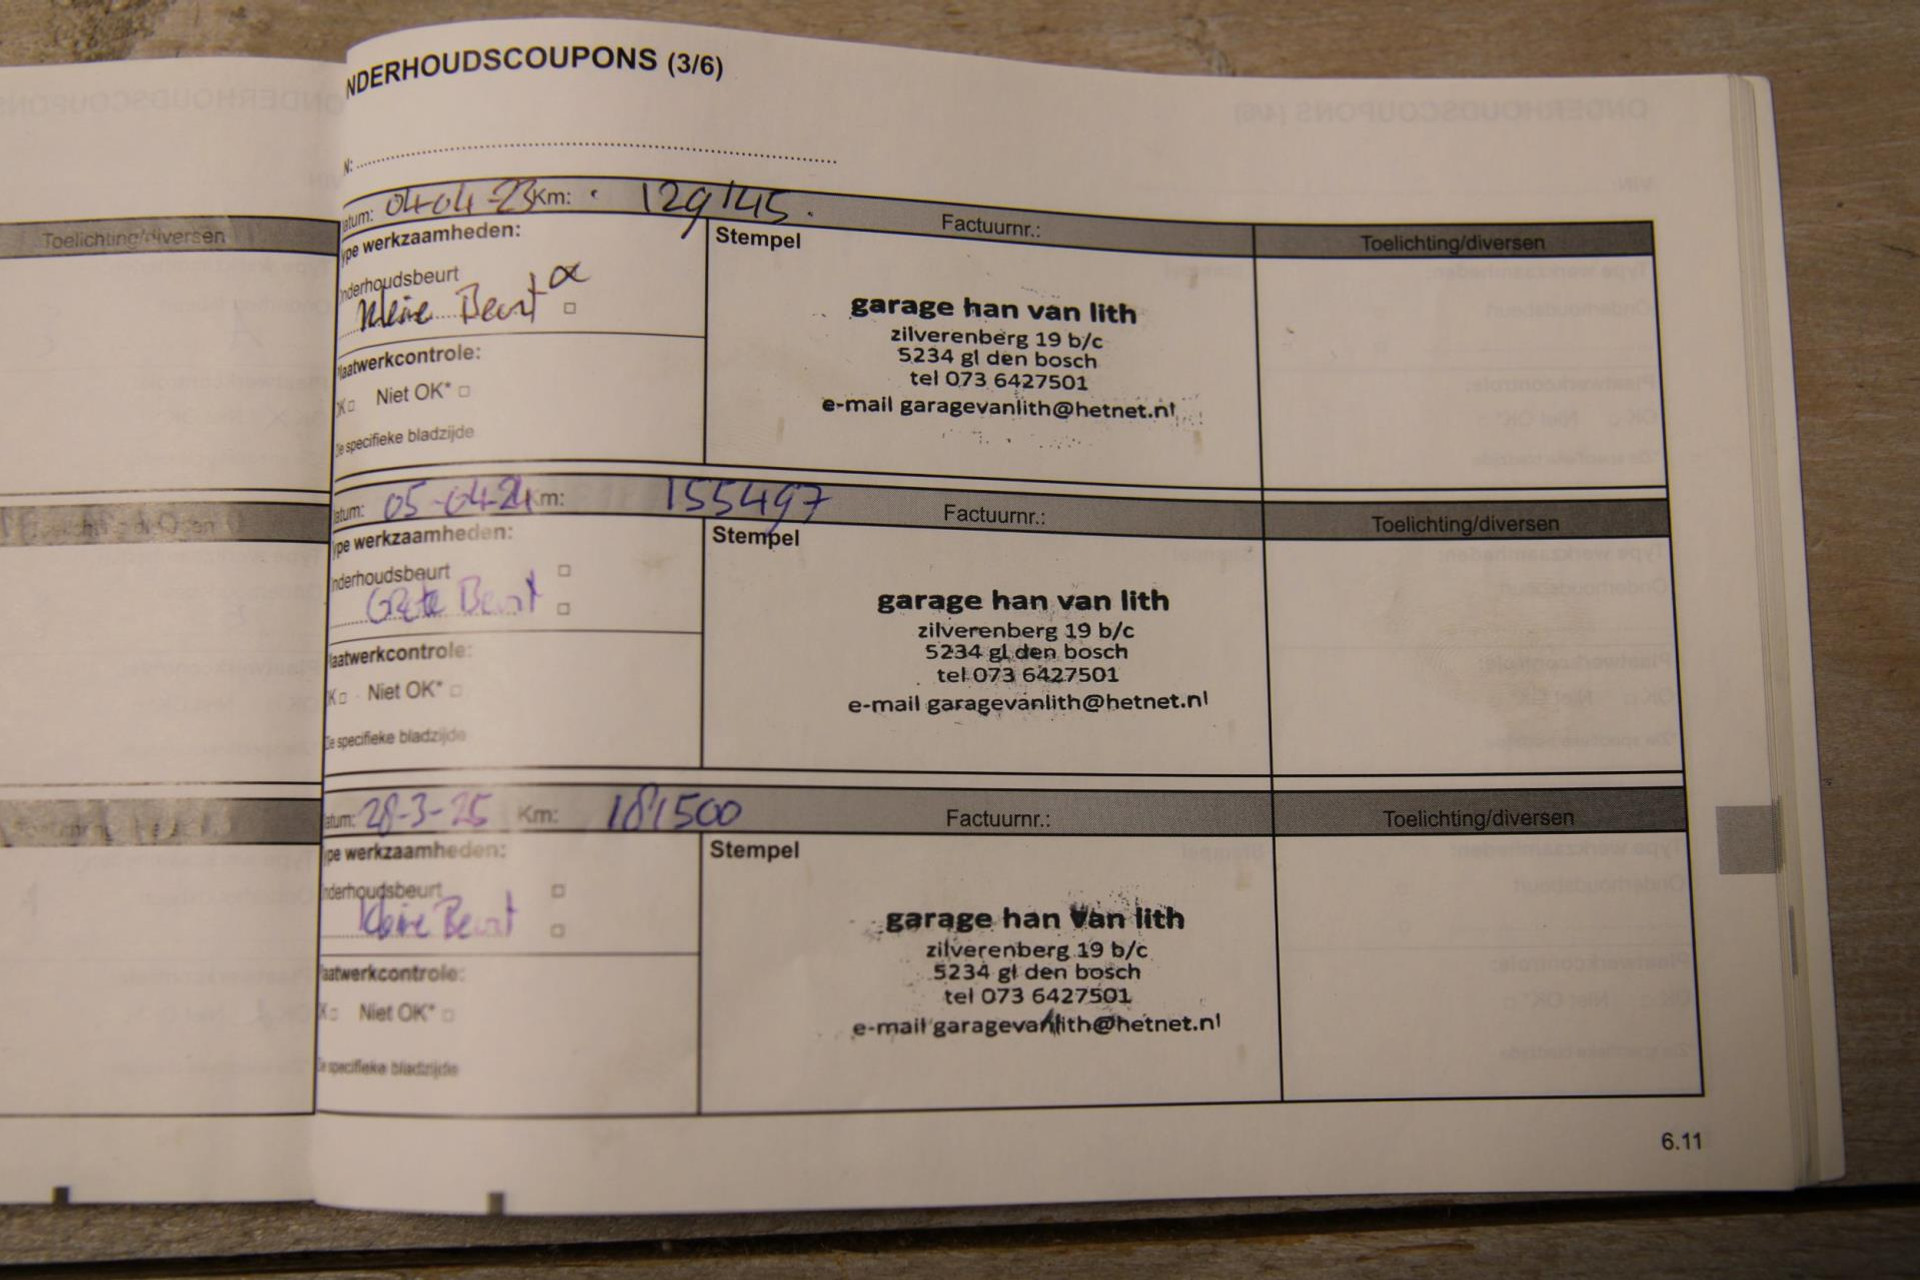 NDERHOUDSCOUPONS (3/6)
N:
atum: 04-04-23 Km: 129145. Factuurnr.: Toelichting/diversen
ype werkzaamheden: Stempel
nderhoudsbeurt
Kleine Beurt
laatwerkcontrole:
OK Niet OK*
ie specifieke bladzijde
garage han van lith
zilverenberg 19 b/c
5234 gl den bosch
tel 073 6427501
e-mail garagevanlith@hetnet.nl
atum: 05-04-24 Km: 155497 Factuurnr.: Toelichting/diversen
ype werkzaamheden: Stempel
nderhoudsbeurt
Grote Beurt
laatwerkcontrole:
K Niet OK*
ie specifieke bladzijde
garage han van lith
zilverenberg 19 b/c
5234 gl den bosch
tel 073 6427501
e-mail garagevanlith@hetnet.nl
atum: 28-3-25 Km: 181500 Factuurnr.: Toelichting/diversen
ype werkzaamheden: Stempel
nderhoudsbeurt
kleine Beurt
laatwerkcontrole:
K Niet OK*
ie specifieke bladzijde
garage han van lith
zilverenberg 19 b/c
5234 gl den bosch
tel 073 6427501
e-mail garagevanlith@hetnet.nl
6.11
Toelichting/diversen